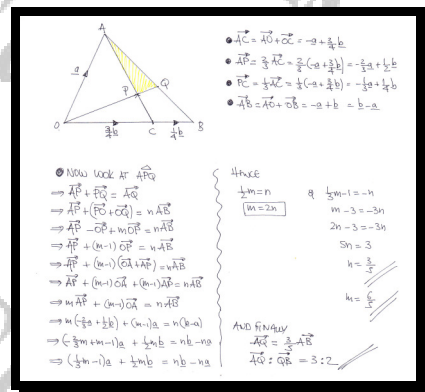 A
a
P
Q
O
3/4 b
C
1/4 b
B
• AC = AO + OC = -a + 3/4 b
• AP = 2/3 AC = 2/3 (-a + 3/4 b) = -2/3 a + 1/2 b
• PC = 1/3 AC = 1/3 (-a + 3/4 b) = -1/3 a + 1/4 b
• AB = AO + OB = -a + b = b - a
• NOW LOOK AT APQ
⇒ AP + PQ = AQ
⇒ AP + (PO + OQ) = nAB
⇒ AP - OP + mOP = nAB
⇒ AP + (m-1) OP = nAB
⇒ AP + (m-1)(OA + AP) = nAB
⇒ AP + (m-1) OA + (m-1) AP = nAB
⇒ mAP + (m-1) OA = nAB
⇒ m(-2/3 a + 1/2 b) + (m-1)a = n(b-a)
⇒ (-2/3 m + m - 1)a + 1/2 mb = nb - na
⇒ (1/3 m - 1)a + 1/2 mb = nb - na
HENCE
1/2 m = n & 1/3 m - 1 = -n
m = 2n
m - 3 = -3n
2n - 3 = -3n
5n = 3
n = 3/5
m = 6/5
AND FINALLY
AQ = 3/5 AB
AQ : QB = 3 : 2